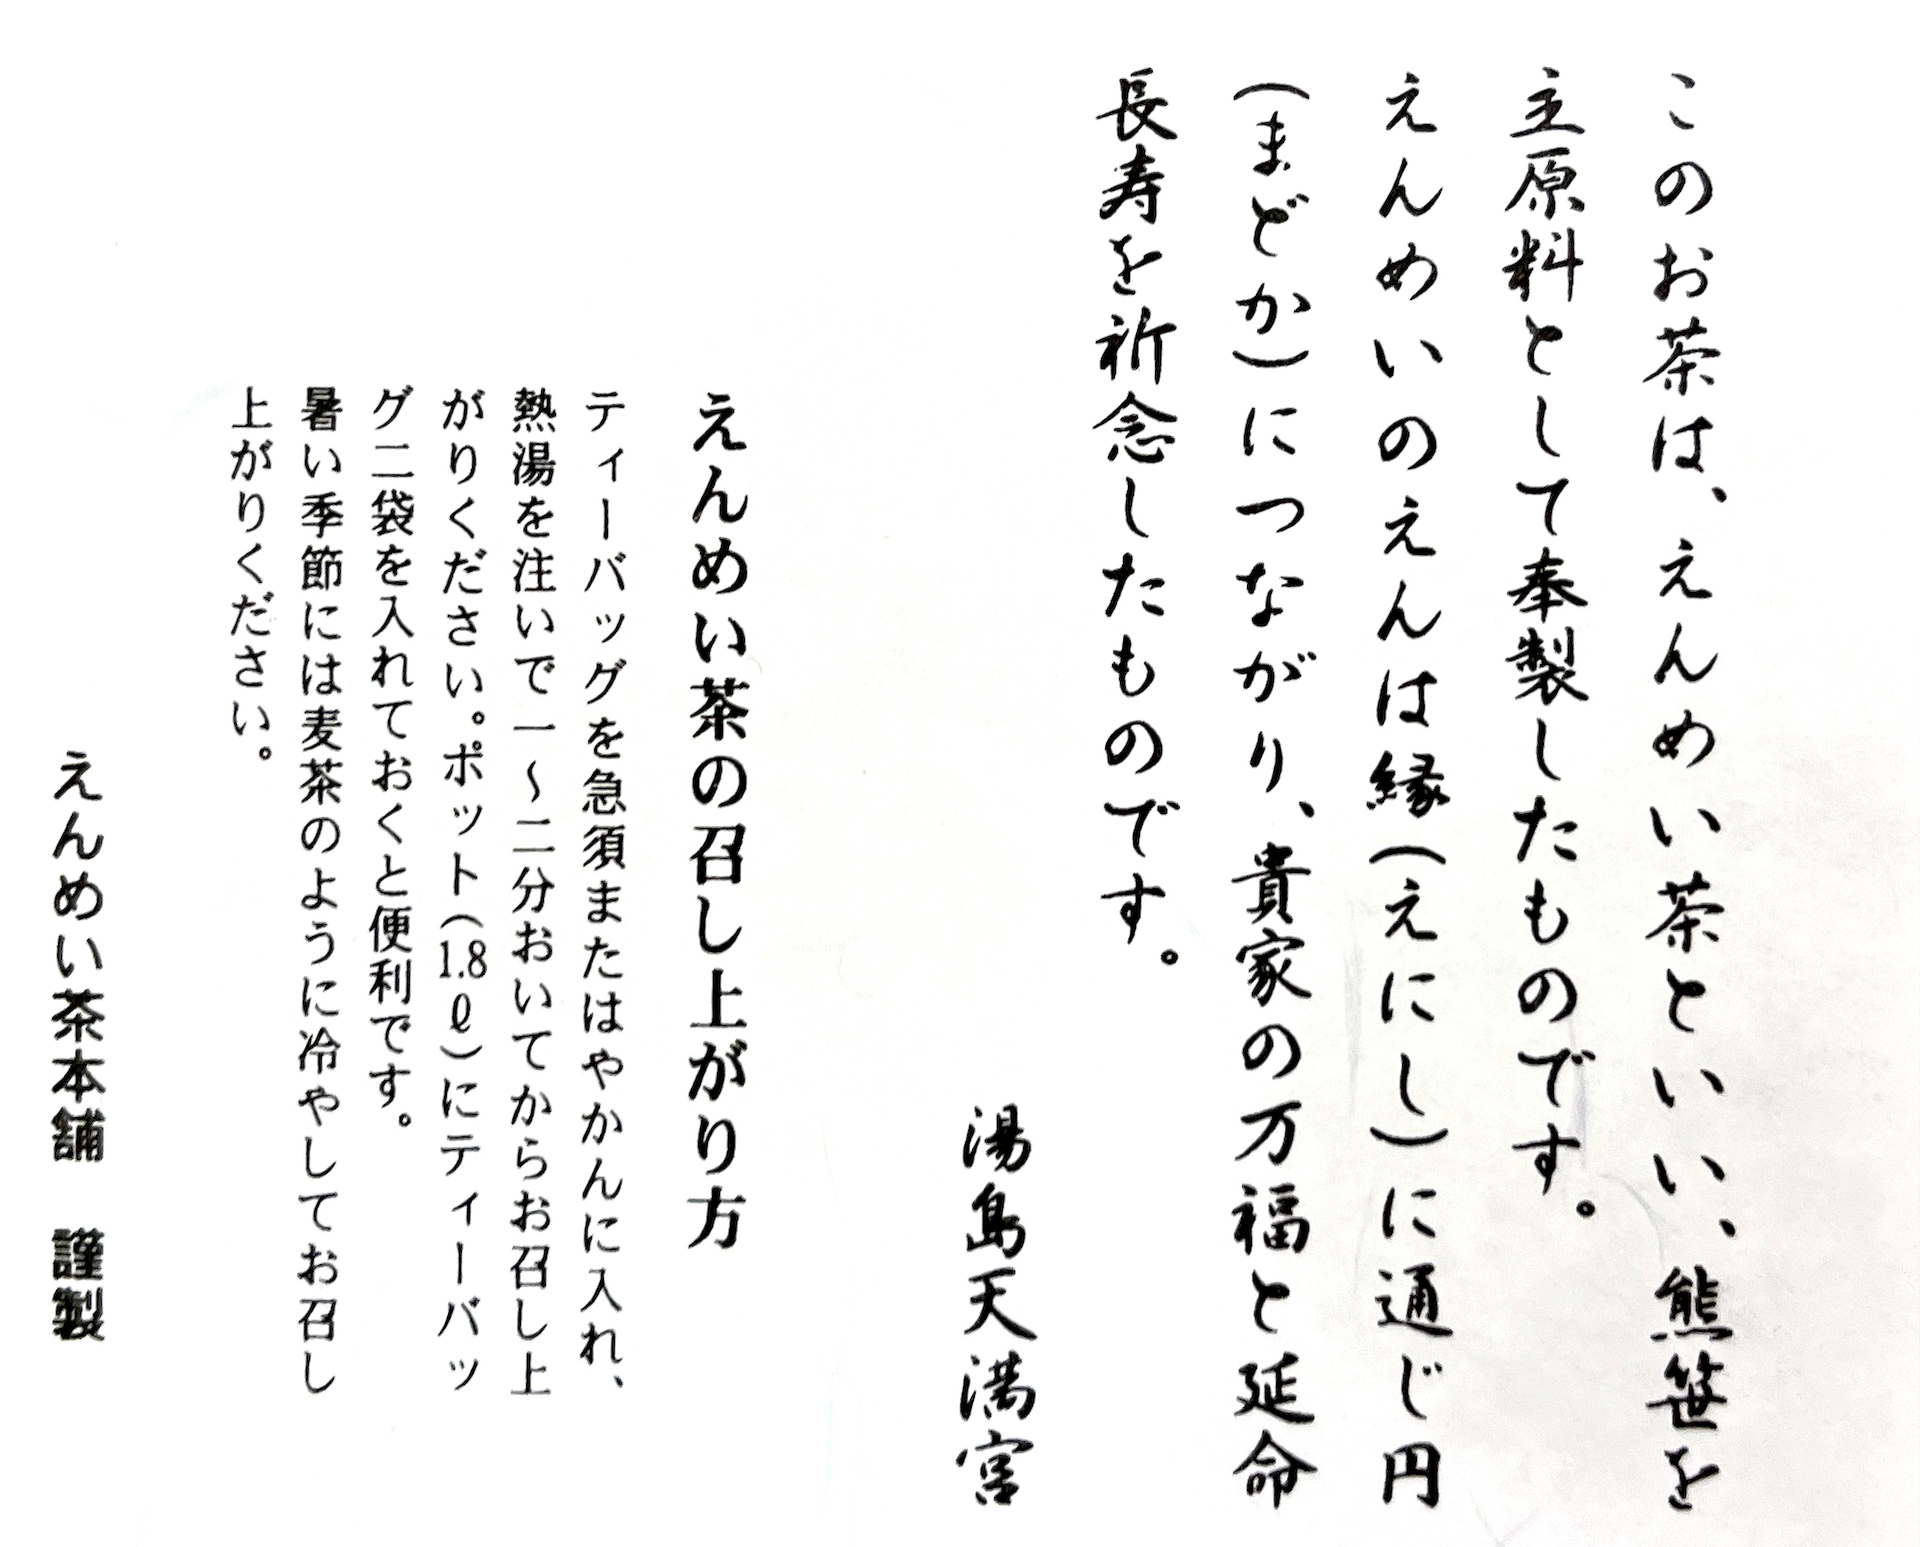 このお茶は、えんめい茶といい、熊笹を
主原料として奉製したものです。
えんめいのえんは縁(えにし)に通じ円
(まどか)につながり、貴家の万福と延命
長寿を祈念したものです。
湯島天満宮
えんめい茶の召し上がり方
ティーバッグを急須またはやかんに入れ、
熱湯を注いで一～二分おいてからお召し上
がりください。ポット(1.8ℓ)にティーバッ
グ二袋を入れておくと便利です。
暑い季節には麦茶のように冷やしてお召し
上がりください。
えんめい茶本舗　謹製